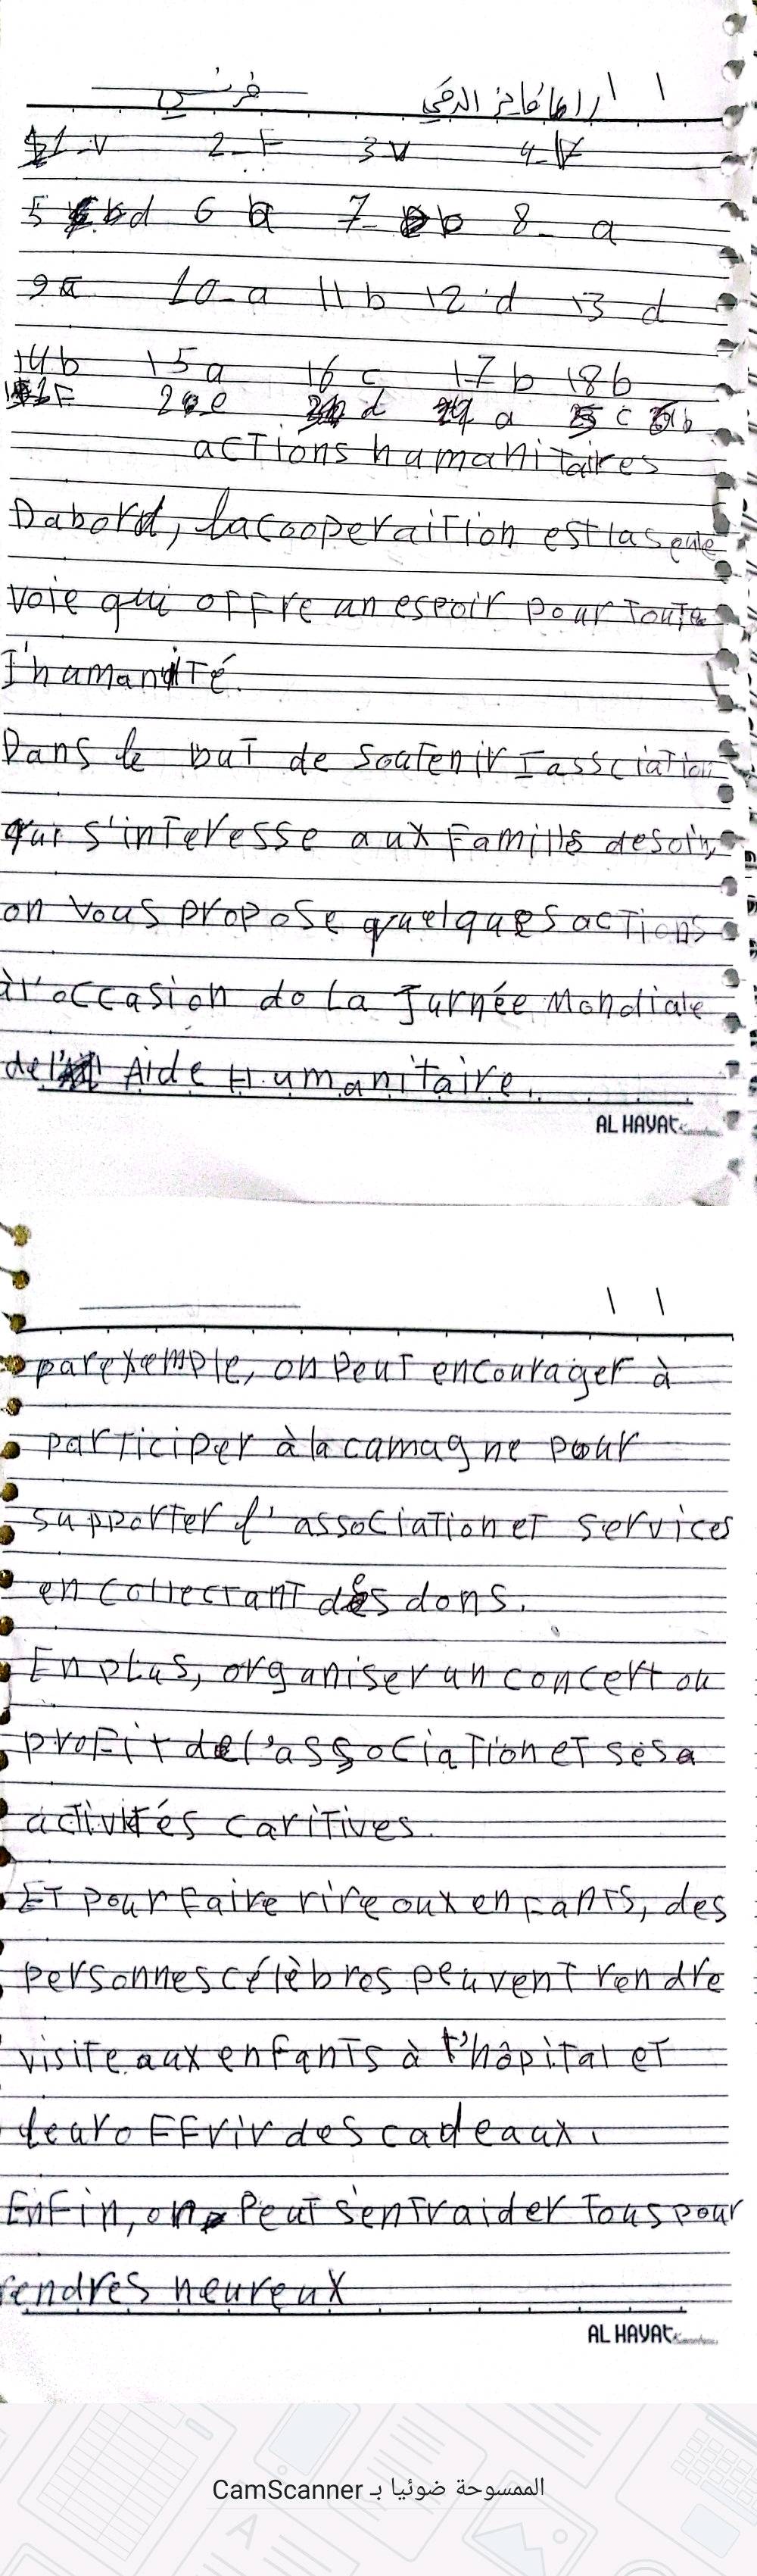 فرنسي
1-v 2-F 3 v 4-F
5 d 6 a 7- b 8- a
9 a 10-a 11 b 12 d 13 d
14 b 15 a 16 c 17 b 18 b
F e d a c b
actions humanitaires
Dabord, la cooperaition est la seule
voie qui offre an espoir pour toute
I'humanité.
Dans le but de soutenir I assciation
qui s'interesse aux famills desoin,
on vous propose quelques actions
àl'occasion do la Jurnée Mondiale
del' Aide Humanitaire.
AL HAYAt
par exemple, on peut encourager à
participer à la camagne pour
supporter l'association et services
en collectant des dons.
En plus, organiser un concert ou
profit de l'association et ses a
activités caritives.
Et pour faire rire oux enfants, des
personnes célèbres peuvent rendre
visite aux enfants à l'hôpital et
leur offrir des cadeaux.
Enfin, on peut s'entraider tous pour
rendres heureux
AL HAYAt
الممسوحة ضوئيا بـ CamScanner